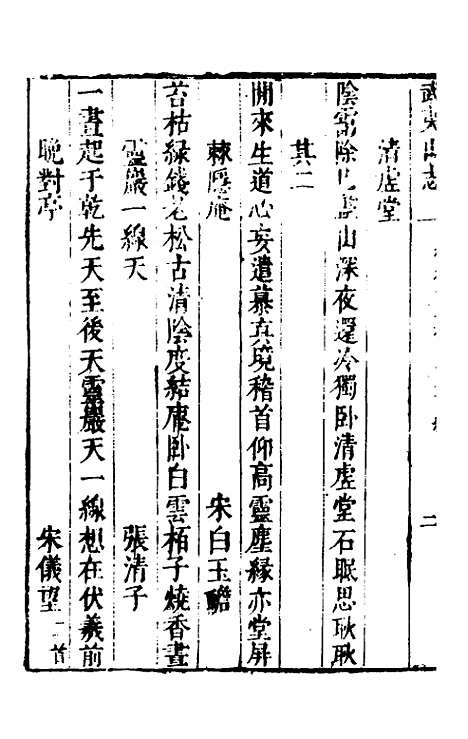 武夷山志 二
清虛堂
陰霧除山深夜還冷獨卧清虛堂石眠思耿耿
其二
閒來生道心妄遣慕真境稽首仰高靈塵緣亦堂屏
棘隱庵 宋白玉蟾
苔枯綠錢老松古清陰度結庵卧白雲栢子燒香晝
靈巖一線天 張清子
一畫起于乾先天至後天靈巖天一線想在伏羲前
晩對亭 朱儀望二首